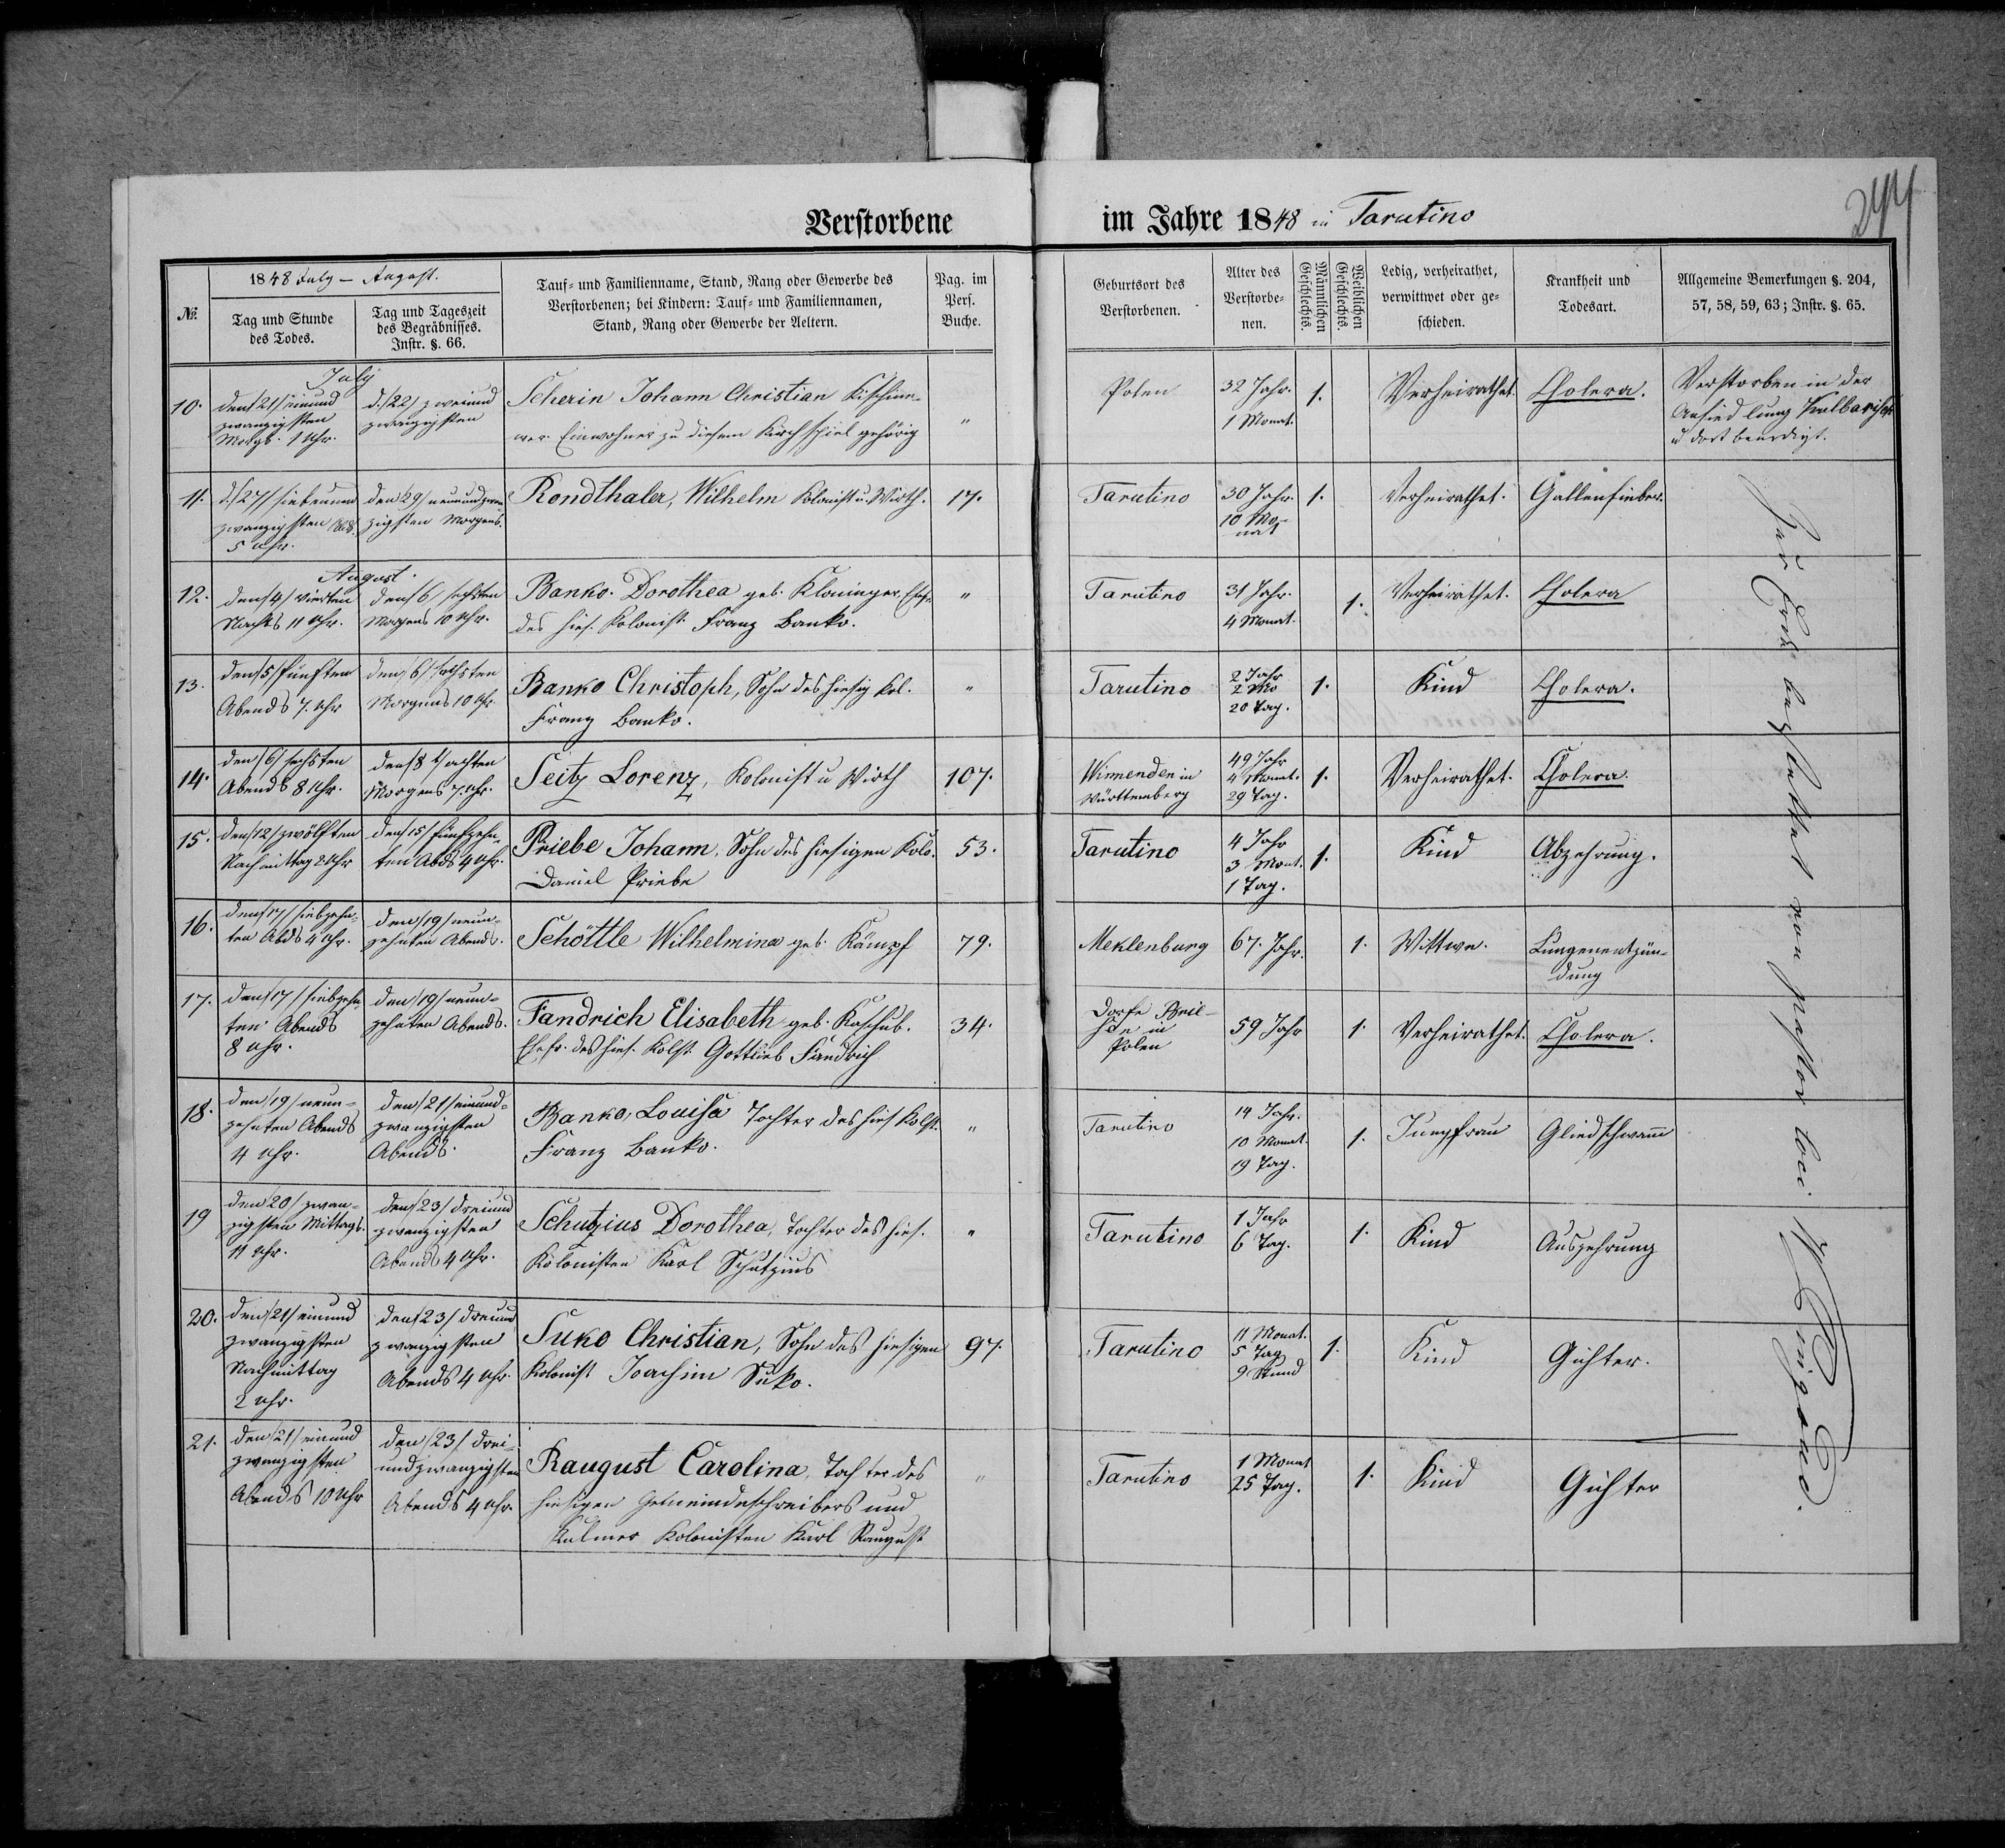 Verstorbene im Jahre 1848 in Tarutino
244
№.
1848 July – August.
Tag und Stunde
des Todes.
Tag und Tageszeit
des Begräbnisses.
Instr. §. 66.
Tauf- und Familienname, Stand, Rang oder Gewerbe des
Verstorbenen; bei Kindern: Tauf- und Familiennamen,
Stand, Rang oder Gewerbe der Aeltern.
Pag. im
Pers.
Buche.
Geburtsort des
Verstorbenen.
Alter des
Verstorbe-
nen.
Männlichen
Geschlechts.
Weiblichen
Geschlechts.
Ledig, verheirathet,
verwittwet oder ge-
schieden.
Krankheit und
Todesart.
Allgemeine Bemerkungen §. 204,
57, 58, 59, 63; Instr. §. 65.
July
10.
den /21/ einund
zwanzigsten
Morgs. 1 Uhr.
d. /22/ zweiund
zwanzigsten
Scherin Johann Christian Kischine-
wer Einwohner zu diesem Kirchspiel gehörig
"
Polen
32 Jahr.
1 Monat.
1.
Verheirathet.
Cholera.
Verstorben in der
Ansiedlung
u dort beerdigt.
11.
d. /27/ siebenund
zwanzigsten Abds.
5 Uhr.
den /29/ neunundzwan-
zigsten Morgens.
Rondthaler, Wilhelm Kolonist u. Wirth.
17.
Tarutino
30 Jahr.
10 Mo-
nat
1.
Verheirathet.
Gallenfieber.
August.
12.
den /4/ vierten
Nachts 11 Uhr.
den /6/ sechsten
Morgens 10 Uhr.
Banko. Dorothea geb. Kloninger, Ehefr.
des hies. Kolonist Franz Banko.
"
Tarutino
31 Jahr.
4 Monat.
1.
Verheirathet.
Cholera
13.
den /5/ fünften
Abends 7. Uhr
den /6/ sechsten
Morgens 10 Uhr
Banko Christoph, Sohn des hiesig Kol.
Franz Banko.
"
Tarutino
2 Jahr
2 Mo
20 Tag.
1.
Kind
Cholera.
14.
den /6/ sechsten
Abends 8 Uhr.
den /8/ achten
Morgens 7. Uhr.
Seitz Lorenz, Kolonist u Wirth
107.
Winnenden in
Württemberg
49 Jahr
4 Monat.
29 Tag.
1.
Verheirathet.
Cholera.
15.
den /12/ zwölften
Nachmittag 2 Uhr
den /15/ fünfzehn-
ten Abds 4 Uhr.
Priebe Johann, Sohn des hiesigen Kolo.
Daniel Priebe
53.
Tarutino
4 Jahr
3 Monat.
1 Tag.
1.
Kind
Abzehrung.
16.
den /17/ siebzehn-
ten Abds 4 Uhr.
den /19/ neun-
zehnten Abends.
Schöttle Wilhelmina geb. Kämpf
79.
Meklenburg
67. Jahr.
1.
Wittwe.
Lungenentzün-
dung
17.
den /17/ siebzehn
ten Abends
8 Uhr.
den /19/ neun-
zehnten Abends.
Fandrich Elisabeth geb. Kaschub.
Ehefr. des hies. Kolst. Gottlieb Fandrich
34.
Dorfe
in
Polen
59 Jahr
1.
Verheirathet.
Cholera.
18.
den /19/ neun-
zehnten Abends
4 Uhr.
den /21/ einund-
zwanzigsten
Abends.
Banko, Louisa Tochter des hies Kolst.
Franz Banko.
"
Tarutino
14 Jahr.
10 Monat.
19 Tag.
1.
Jungfrau
Gliedschwamm
19
den /20/ zwan-
zigsten Mittags.
11 Uhr.
den /23/ dreiund
zwanzigsten
Abends 4 Uhr.
Schutzius Dorothea, Tochter des hies.
Kolonisten Karl Schutzius
"
Tarutino
1 Jahr
6 Tag.
1.
Kind
Auszehrung
20.
den /21/ einund
zwanzigsten
Nachmittag
2 Uhr.
den /23/ dreiund
zwanzigsten
Abends 4 Uhr.
Suko Christian, Sohn des hiesigen
Kolonist Joachim Suko.
97.
Tarutino
11 Monat.
5 Tag
9 Stund
1.
Kind
Gichter.
21.
den /21/ einund
zwanzigsten
Abends 10 Uhr
den /23/ drei-
undzwanzigsten
Abends 4 Uhr.
Raugust Carolina, Tochter des
hiesigen Gemeindeschreibers und
Kulmer Kolonisten Karl Raugust
"
Tarutino
1 Monat
25 Tag.
1.
Kind
Gichter
von Pastor loci